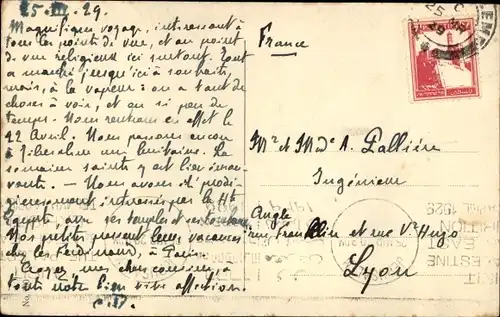 25. III. 29.
Magnifique voyage, intéressant à
tous les points de vue, et au point
de vue religieux ici surtout. Tout
a marché jusqu'ici à souhait,
mais, à la vapeur : on a tant de
choses à voir, et on si peu de
temps. Nous rentrons en effet le
22 Avril. Nous passons encore
à Jérusalem une huitaine. La
semaine sainte y est bien
— Nous avons été prodi-
gieusement intéressés par la Hte
Egypte, avec ses temples et ses tombeaux
Nos petites passent leurs vacances
chez les Ferdinand, à Paris.
Croyez, mes chers cousins, à
toute notre bien vive affection.
France
Mr et Mde A. Pallière
Ingénieur
Angle
rue Franklin et rue Vr Hugo
Lyon
25 MR
29